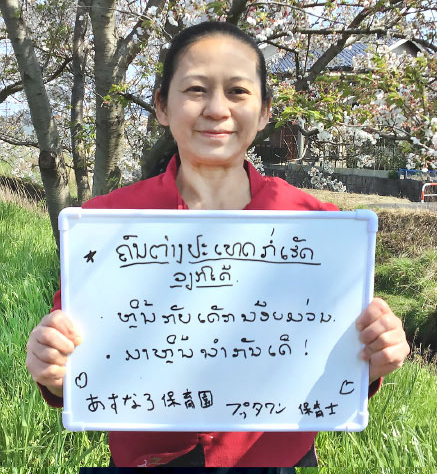 * ຄົນຕ່າງປະເທດກໍ່ເຮັດ
ວຽກໄດ້.
· ຫຼິ້ນກັບເດັກນ້ອຍມ່ວນ.
· ມາຫຼິ້ນນຳກັນເດີ້!
あすなろ保育園 保育士